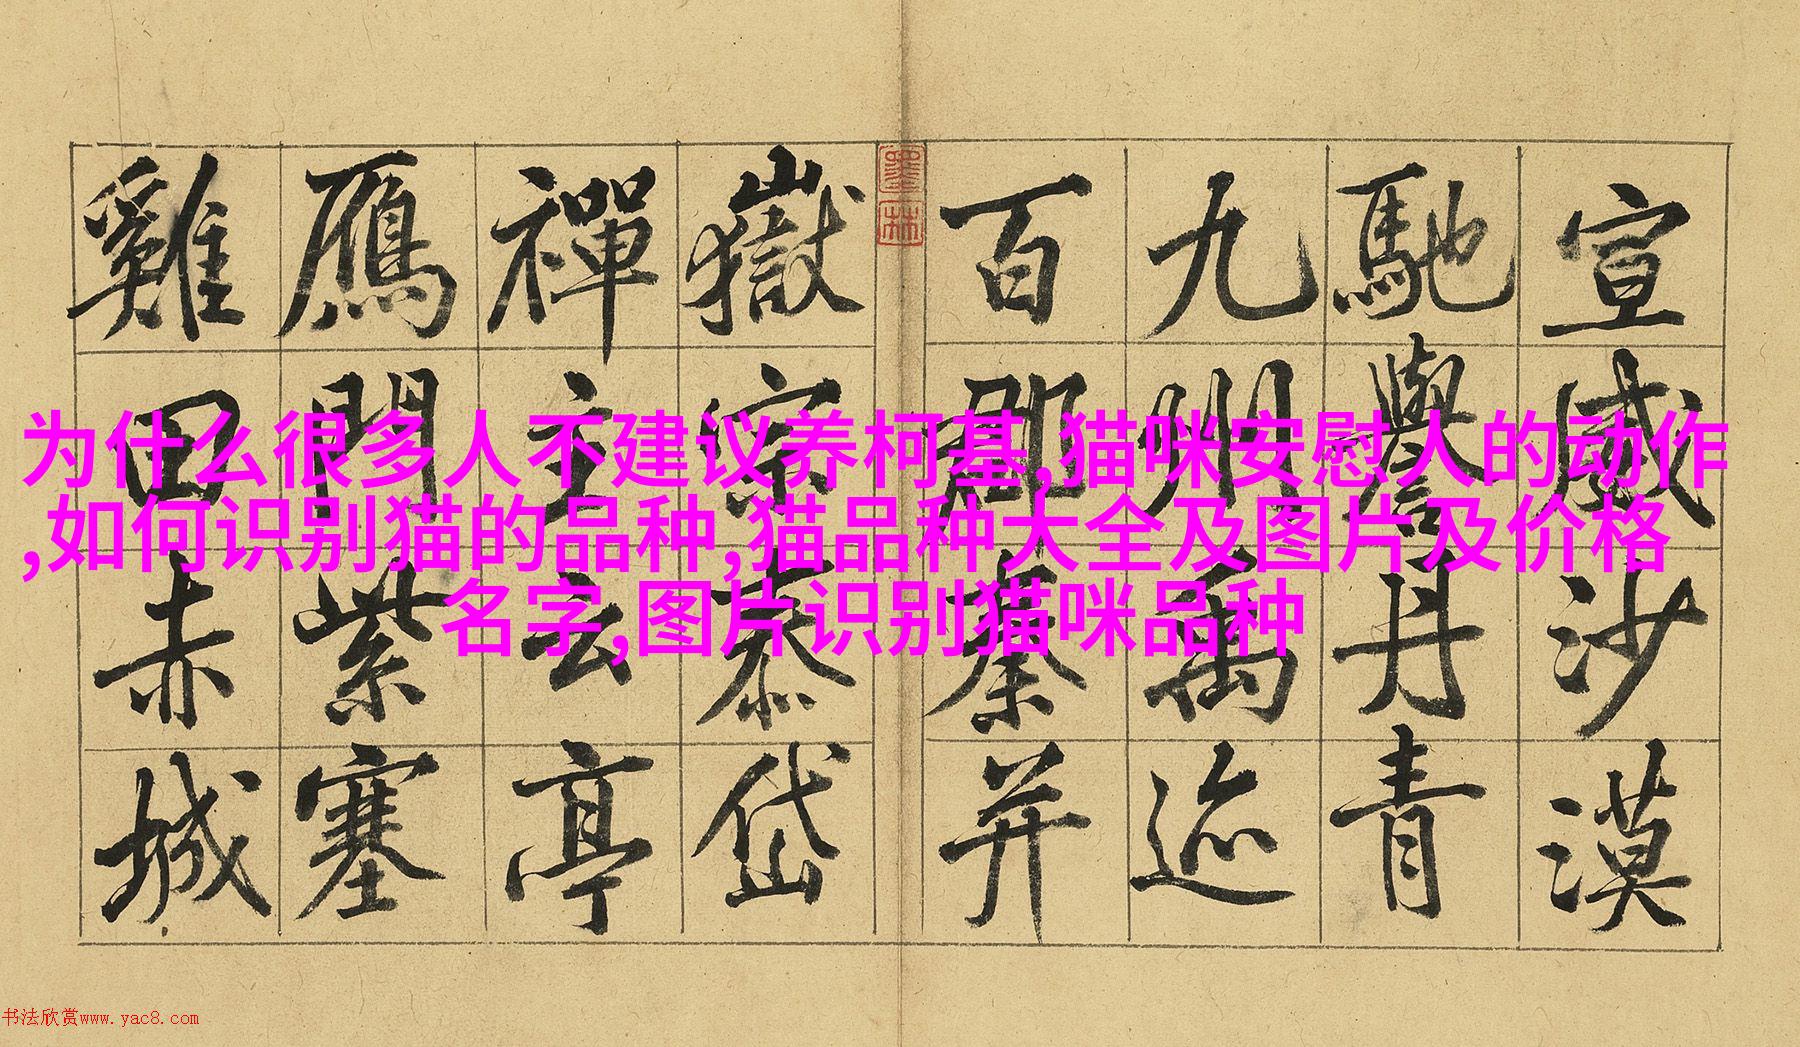 宣威沙漠
馳譽丹青
九州禹迹
百郡秦并
墨林
嶽宗泰岱
禪主云亭
鴈門紫塞
雞田赤城
为什么很多人不建议养柯基,猫咪安慰人的动作
,如何识别猫的品种,猫品种大全及图片及价格
名字,图片识别猫咪品种
书法欣赏www.yac8.com